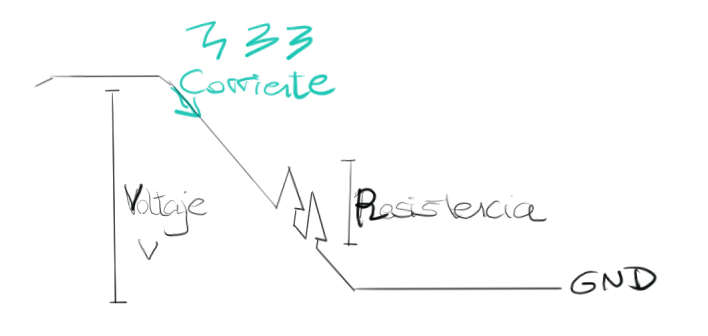 Corriente
Voltaje
V
Resistencia
GND